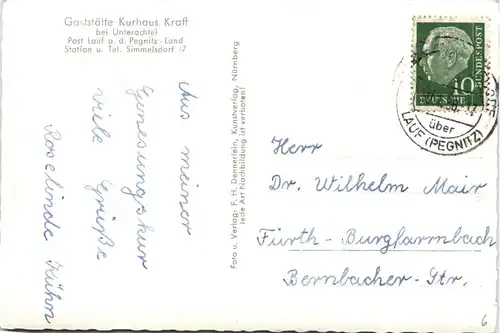 Gaststätte Kurhaus Kraft
bei Unterachtel
Post Lauf a. d. Pegnitz-Land
Station u. Tel. Simmelsdorf 17
Aus meiner
Genesungskur
viele Grüße
Roselinde Kühn
Foto u. Verlag: F. H. Dennerlein, Kunstverlag, Nürnberg
Jede Art Nachbildung ist verboten!
DEUTSCHE
BUNDESPOST
10
über
LAUF (PEGNITZ)
Herr
Dr. Wilhelm Mair
Fürth-Burgfarrnbach
Bernbacher-Str.
6